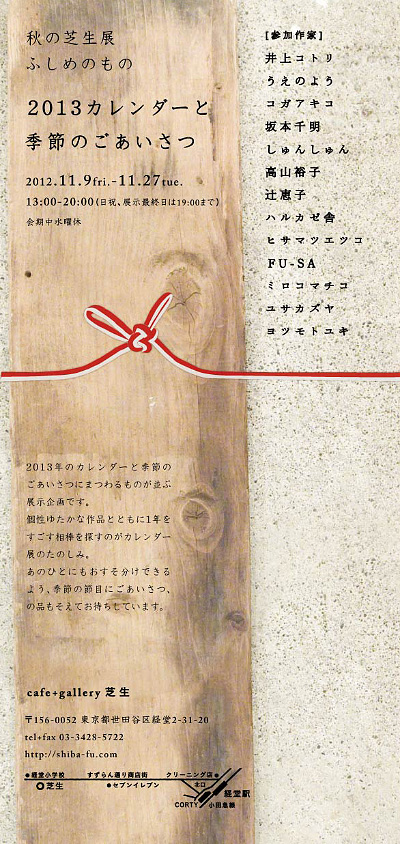 秋の芝生展
ふしめのもの
2013カレンダーと
季節のごあいさつ
2012.11.9fri.-11.27tue.
13:00-20:00(日祝、展示最終日は19:00まで)
会期中水曜休
[参加作家]
井上コトリ
うえのよう
コガアキコ
坂本千明
しゅんしゅん
高山裕子
辻恵子
ハルカゼ舎
ヒサマツエツコ
FU-SA
ミロコマチコ
ユサカズヤ
ヨツモトユキ
2013年のカレンダーと季節の
ごあいさつにまつわるものが並ぶ
展示企画です。
個性ゆたかな作品とともに1年を
すごす相棒を探すのがカレンダー
展のたのしみ。
あのひとにもおすそ分けできる
よう、季節の節目にごあいさつ、
の品もそえてお待ちしています。
cafe+gallery 芝生
〒156-0052 東京都世田谷区経堂2-31-20
tel+fax 03-3428-5722
http://shiba-fu.com
経堂小学校 すずらん通り商店街 クリーニング店
芝生 セブンイレブン 北口 経堂駅
CORTY 小田急線